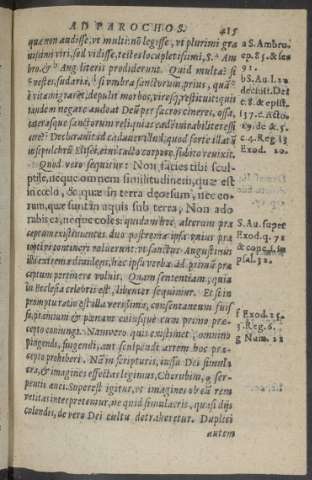 AD PAROCHOS. 415
que non audisse, vt multi: nō legisse, vt plurimi gra
uissimi viri, sed vidisse, testes locupletissimi, S. Am
bro. & Aug. literis prodiderunt. Quid multa? si
vestes, sudaria, si vmbra sanctorum prius, quā
è vita migrarēt, depulit morbos, viresq; restituit: quis
tandem negare audeat Deū per sacros cineres, ossa,
cæterasque sanctorum reliquias eadē mirabiliter effi
cere? Declarauit id cadauer illud, quod forte illatū
in sepulchrū Elisei, eius tacto corpore, subito reuixit.
Quod vero sequitur: Non facies tibi scul
ptile, neque omnem similitudinem, quæ est
in cœlo, & quæ in terra deorsum, nec eo-
rum, quæ sunt in aquis sub terra, Non ado
rabis ea, neque coles: quidam hoc alterum præ
ceptum existimentes, duo postrema ipsa vnius præ
cepti vim habere voluerunt: vt sanctus Augustinus
illa extrema diuidens, hæc ipsa verba ad primū præ
ceptum pertinere voluit. Quam sententiam, quia
in Ecclesia celebris est, libenter sequimur. Et si in
promptu ratio est illa verissima, consentaneum fuis
se, præmium & pœnam cuiusque cum primo præ-
cepto coniungi. Nam vero quis existimet omnino
pingendi, fingendi, aut sculpendi artem hoc præ-
cepto prohiberi. Nā in scripturis, iussu Dei simula
cra, & imagines effectas legimus, Cherubim, & ser-
pentis ænei. Superest igitur, vt imagines ob eā rem
vetitas interpretemur, ne quid simulacris, quasi dijs
colendis, de vero Dei cultu detraheretur. Duplici
autem
a S. Ambro.
ep. 85. & ser
91.
b S. Au. l. 22
de ciuit. Dei
c. 8. & epist.
137. c. Acto.
19. de & 5.
c 4. Reg. 13
Exod. 20.
S. Au. super
Exod. q. 71
& copel. in
psal. 32.
f Exod. 25.
3. Reg. 6.
g Num. 21